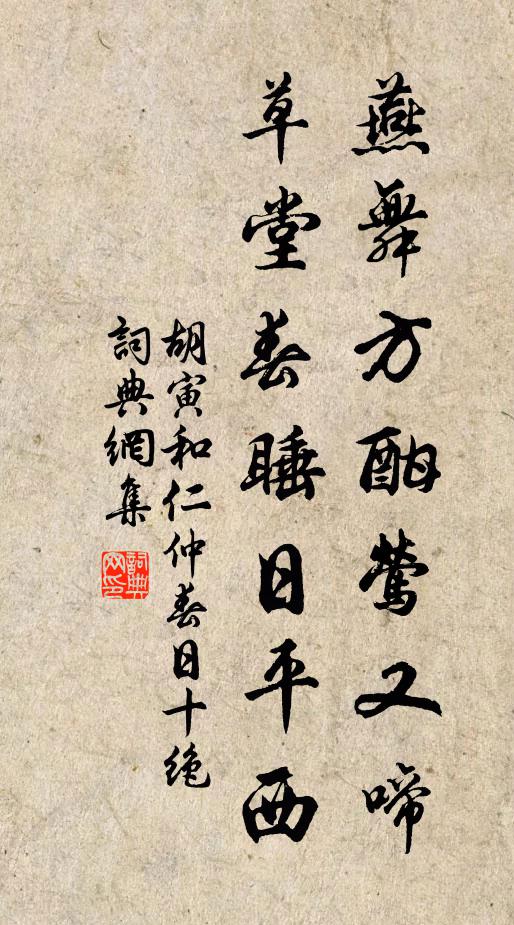 燕舞方酣鶯又啼
草堂春睡日平西
胡寅和仁仲春日十绝
詞典網集
詞典网印